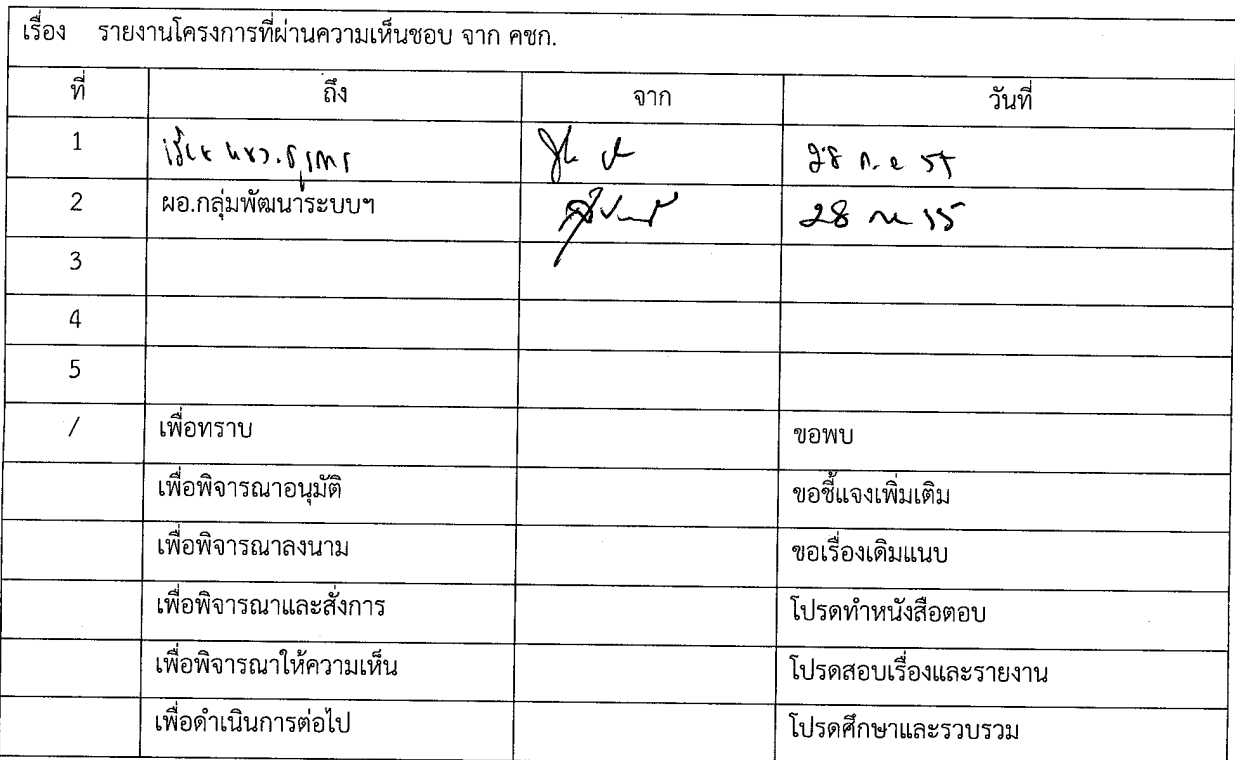 เรื่อง รายงานโครงการที่ผ่านความเห็นชอบ จาก คชก.
ที่ ถึง จาก วันที่
1 28
2 ผอ.กลุ่มพัฒนาระบบฯ 28
3
4
5
/ เพื่อทราบ ขอพบ
เพื่อพิจารณาอนุมัติ ขอชี้แจงเพิ่มเติม
เพื่อพิจารณาลงนาม ขอเรื่องเดิมแนบ
เพื่อพิจารณาและสั่งการ โปรดทำหนังสือตอบ
เพื่อพิจารณาให้ความเห็น โปรดสอบเรื่องและรายงาน
เพื่อดำเนินการต่อไป โปรดศึกษาและรวบรวม